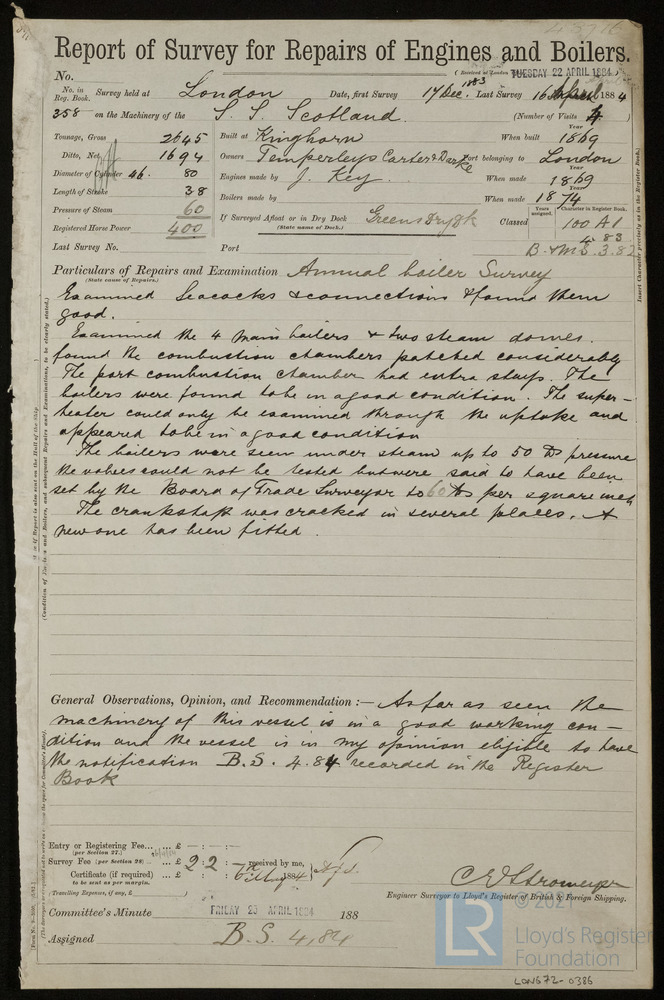 Report of Survey for Repairs of Engines and Boilers.
No. (Received at London TUESDAY 22 APRIL 1884)
No. in Reg. Book. Survey held at London Date, first Survey 17 Dec. 1883 Last Survey 16 April 1884
358 on the Machinery of the S. S. Scotland (Number of Visits 4)
Tonnage, Gross 2645 Built at Kinghorn When built Year 1869
Ditto, Net 1694 Owners Temperleys Carter & Darke Port belonging to London
Diameter of Cylinder 46. 80 Engines made by J. Key. When made Year 1869
Length of Stroke 38 Boilers made by When made Year 1874
Pressure of Steam 60 If Surveyed Afloat or in Dry Dock Greens Dry Dk Classed Years assigned. Character in Register Book. 100 A1
Registered Horse Power 400 (State name of Dock.) 4.83
Last Survey No. Port B. & M S. 3.82
Particulars of Repairs and Examination Annual boiler Survey
(State cause of Repairs.)
Examined Seacocks & connections & found them
good.
Examined the 4 main boilers & two steam domes.
found the combustion chambers patched considerably
The port combustion chamber had extra stays. The
boilers were found to be in a good condition. The super-
heater could only be examined through the uptake and
appeared to be in a good condition
The boilers were seen under steam up to 50 lbs pressure
the valves could not be tested but were said to have been
set by the Board of Trade Surveyor to 60 lbs per square inch
The crankshaft was cracked in several places. A
new one has been fitted.
General Observations, Opinion, and Recommendation :— As far as seen the
machinery of this vessel is in a good working con-
dition and the vessel is in my opinion eligible to have
the notification B.S. 4.84 recorded in the Register
Book
Entry or Registering Fee... ... £ — : — :
(per Section 27.)
Survey Fee (per Section 28) ... £ 2 : 2 : — received by me,
Certificate (if required) ... £ — : — : 1884
(to be sent as per margin.
(Travelling Expenses, if any, £ )
Engineer Surveyor to Lloyd's Register of British & Foreign Shipping.
Committee's Minute FRIDAY 25 APRIL 1884 188
Assigned B. S. 4,84
Insert Character precisely as in the Register Book.
© 2021
LR
Lloyd's Register
Foundation
LON672-0386